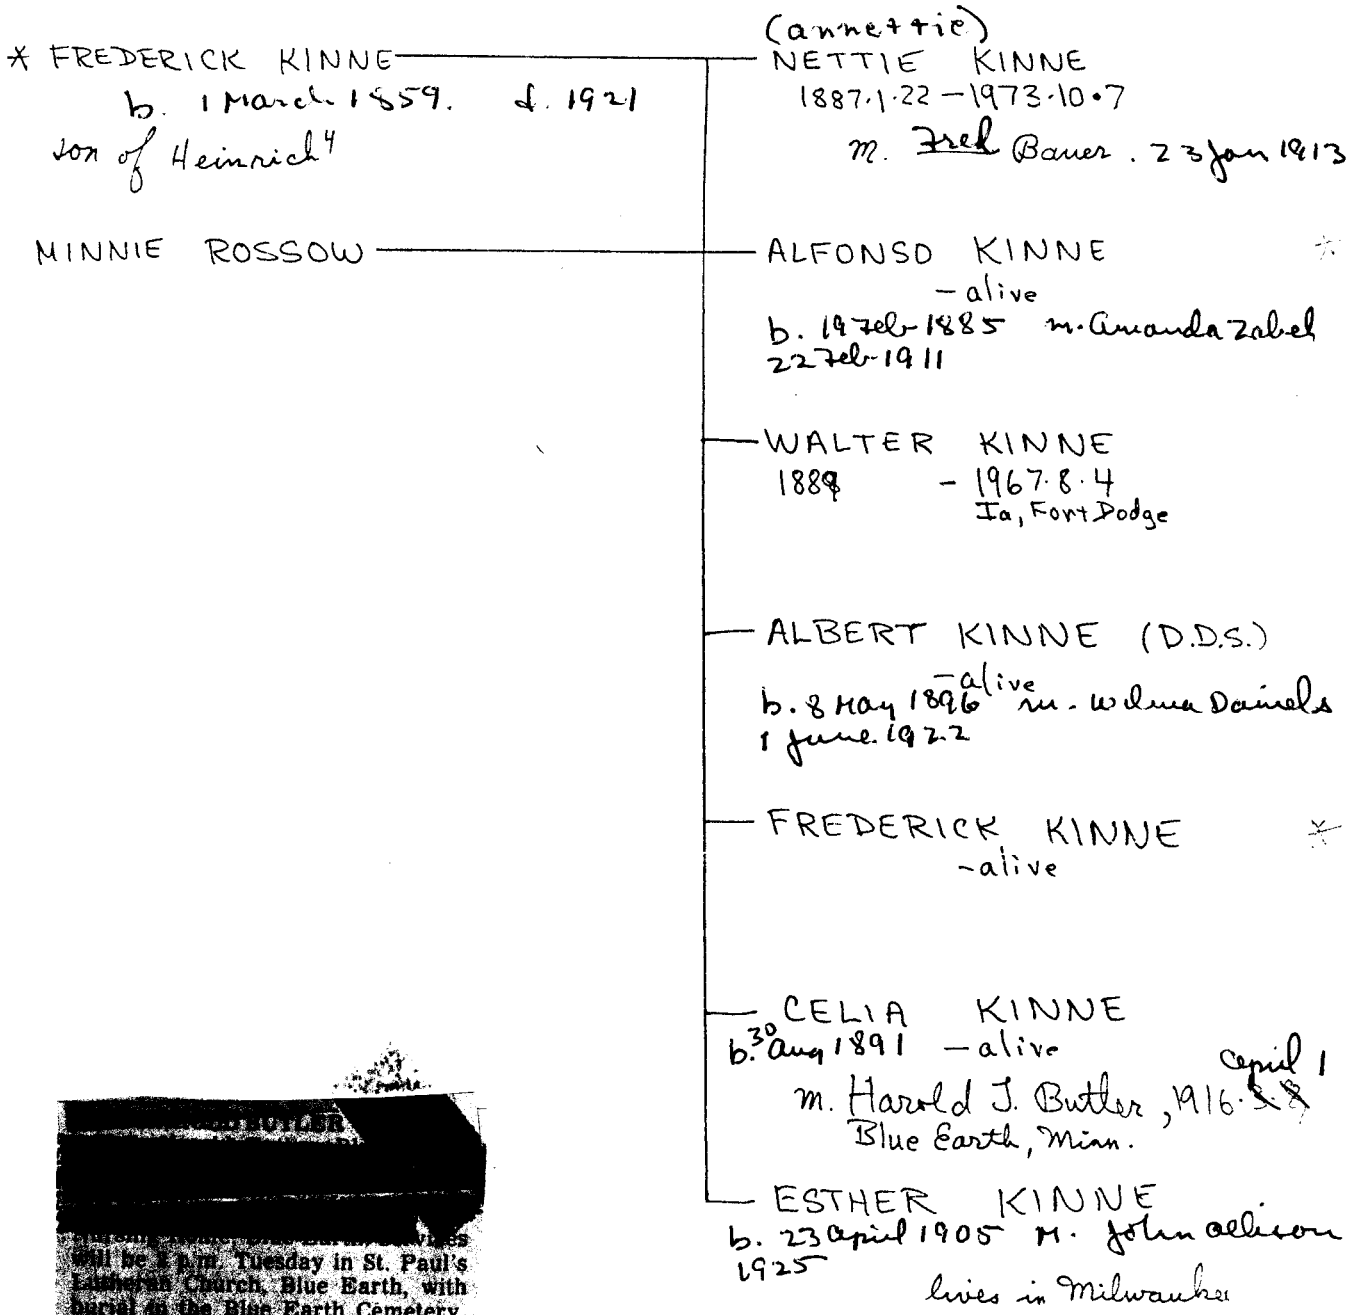 * FREDERICK KINNE
b. 1 March 1859. d. 1921
son of Heinrich⁴
MINNIE ROSSOW
(annettie)
NETTIE KINNE
1887.1.22 – 1973.10.7
m. Fred Bauer. 23 Jan 1913
ALFONSO KINNE *
– alive
b. 19 Feb 1885 m. Amanda Zabel
22 Feb 1911
WALTER KINNE
1889 – 1967.8.4
Ia, Fort Dodge
ALBERT KINNE (D.D.S.)
– alive
b. 8 May 1896 m. Wilma Daniels
1 June 1922
FREDERICK KINNE *
– alive
CELIA KINNE
b. 30 Aug 1891 – alive
april 1
m. Harold J. Butler, 1916.
Blue Earth, Minn.
ESTHER KINNE
b. 23 april 1905 M. John Allison
1925
lives in Milwaukee
BUTLER
will be 2 p.m. Tuesday in St. Paul's
Lutheran Church, Blue Earth, with
burial in the Blue Earth Cemetery.